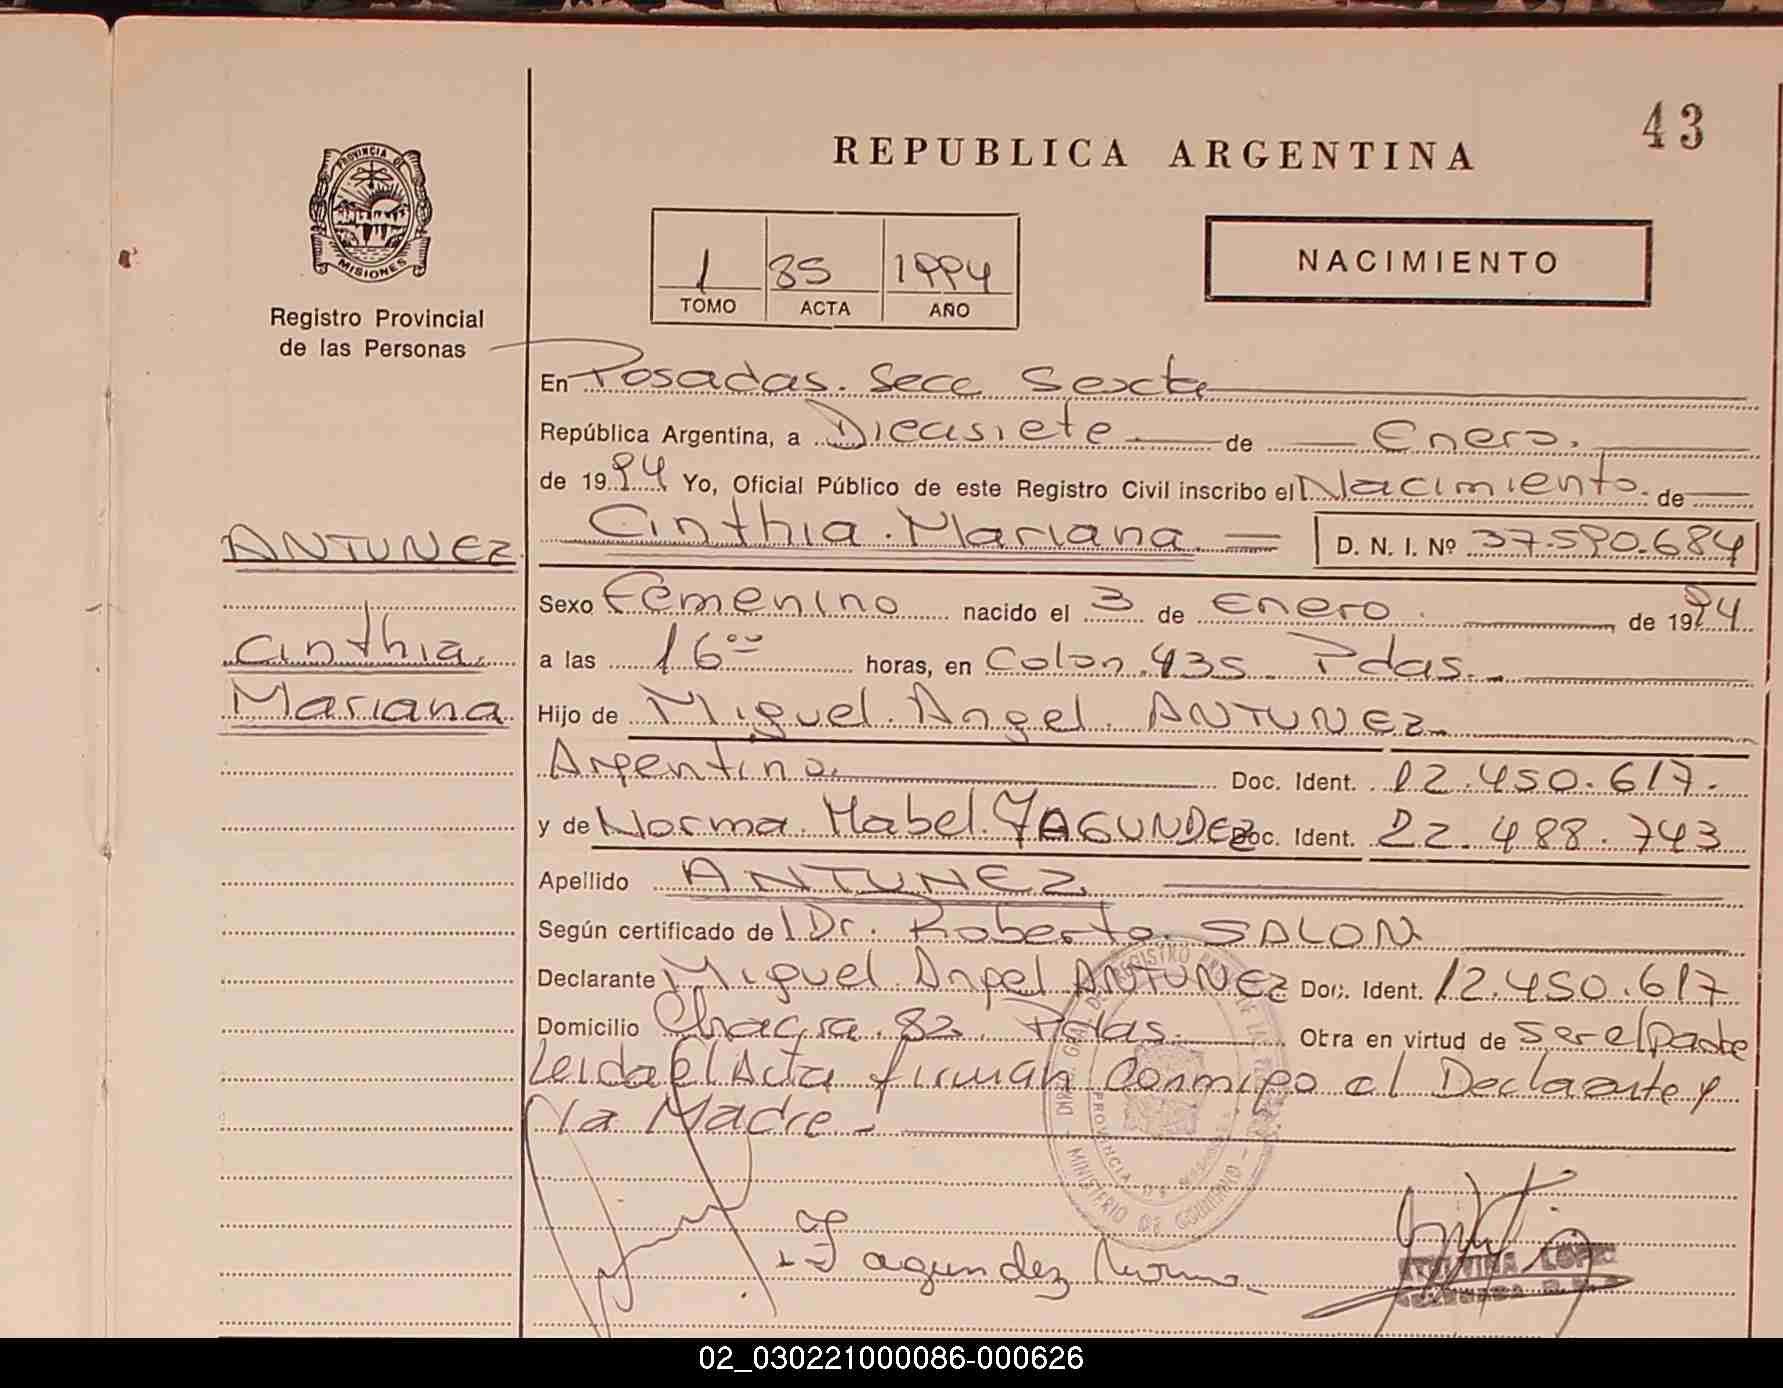 43
REPUBLICA ARGENTINA
PROVINCIA DE
MISIONES
Registro Provincial
de las Personas
NACIMIENTO
1 85 1994
TOMO ACTA AÑO
En Posadas. Secc Sexta
República Argentina, a Diecisiete de Enero.
de 1994 Yo, Oficial Público de este Registro Civil inscribo el Nacimiento. de
Cinthia. Mariana D. N. I. Nº 37.590.684
ANTUNEZ
Cinthia
Mariana
Sexo Femenino nacido el 3 de Enero. de 1994
a las 16 00 horas, en Colon 435 Pdas.
Hijo de Miguel. Angel. ANTUNEZ
Argentino. Doc. Ident. 12.450.617.
y de Norma. Mabel. FAGUNDEZ Doc. Ident. 22.488.743
Apellido ANTUNEZ
Según certificado de Dr. Roberto. SALON
Declarante Miguel Angel ANTUNEZ Doc. Ident. 12.450.617
Domicilio Chacra. 82. Pdas. Otra en virtud de ser el Padre
Leida el Acta firman Conmigo el Declarante y
la Madre -
MINISTERIO DE GOBIERNO
Fagundez Norma